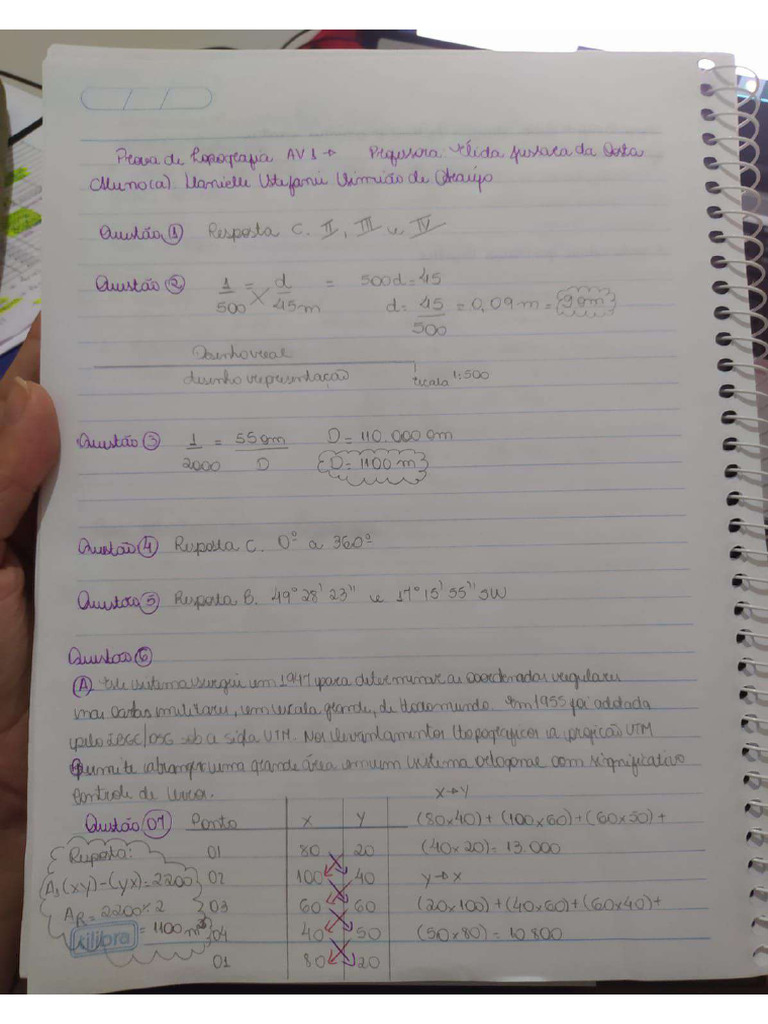 Prova de Topografia AV1 → Professora: Élida Jussara da Costa
Aluno(a) Danielle Stefanie Simião de Araújo
Questão 1 Resposta C. II, III e IV
Questão 2 1/500 = d/45m = 500d=45
d= 45/500 = 0,09m = 9cm
Desenho real
desenho representação escala 1:500
Questão 3 1/2000 = 55cm/D D= 110.000cm
D= 1100m
Questão 4 Resposta C. 0º a 360º
Questão 5 Resposta B. 49° 28' 23" e 17° 15' 55" SW
Questão 6
A Este sistema surgiu em 1947 para determinar as coordenadas regulares
nas cartas militares, em escala grande, de todo mundo. Em 1955 foi adotada
pelo IBGE/DSG sob a sigla UTM. Nos levantamentos topográficos a projeção UTM
permite abranger uma grande área em um sistema ortogonal com significativo
controle de
X→Y
Questão 07 Ponto X Y (80x40) + (100x60) + (60x50) +
Resposta: 01 80 20 (40x20) = 13.000
A₁ (xy) - (yx) = 2200 02 100 40 y→x
AR = 2200 % 2 03 60 60 (20x100) + (40x60) + (60x40) +
= 1100 m² 04 40 50 (50x80) = 10.800
01 80 20
tilibra